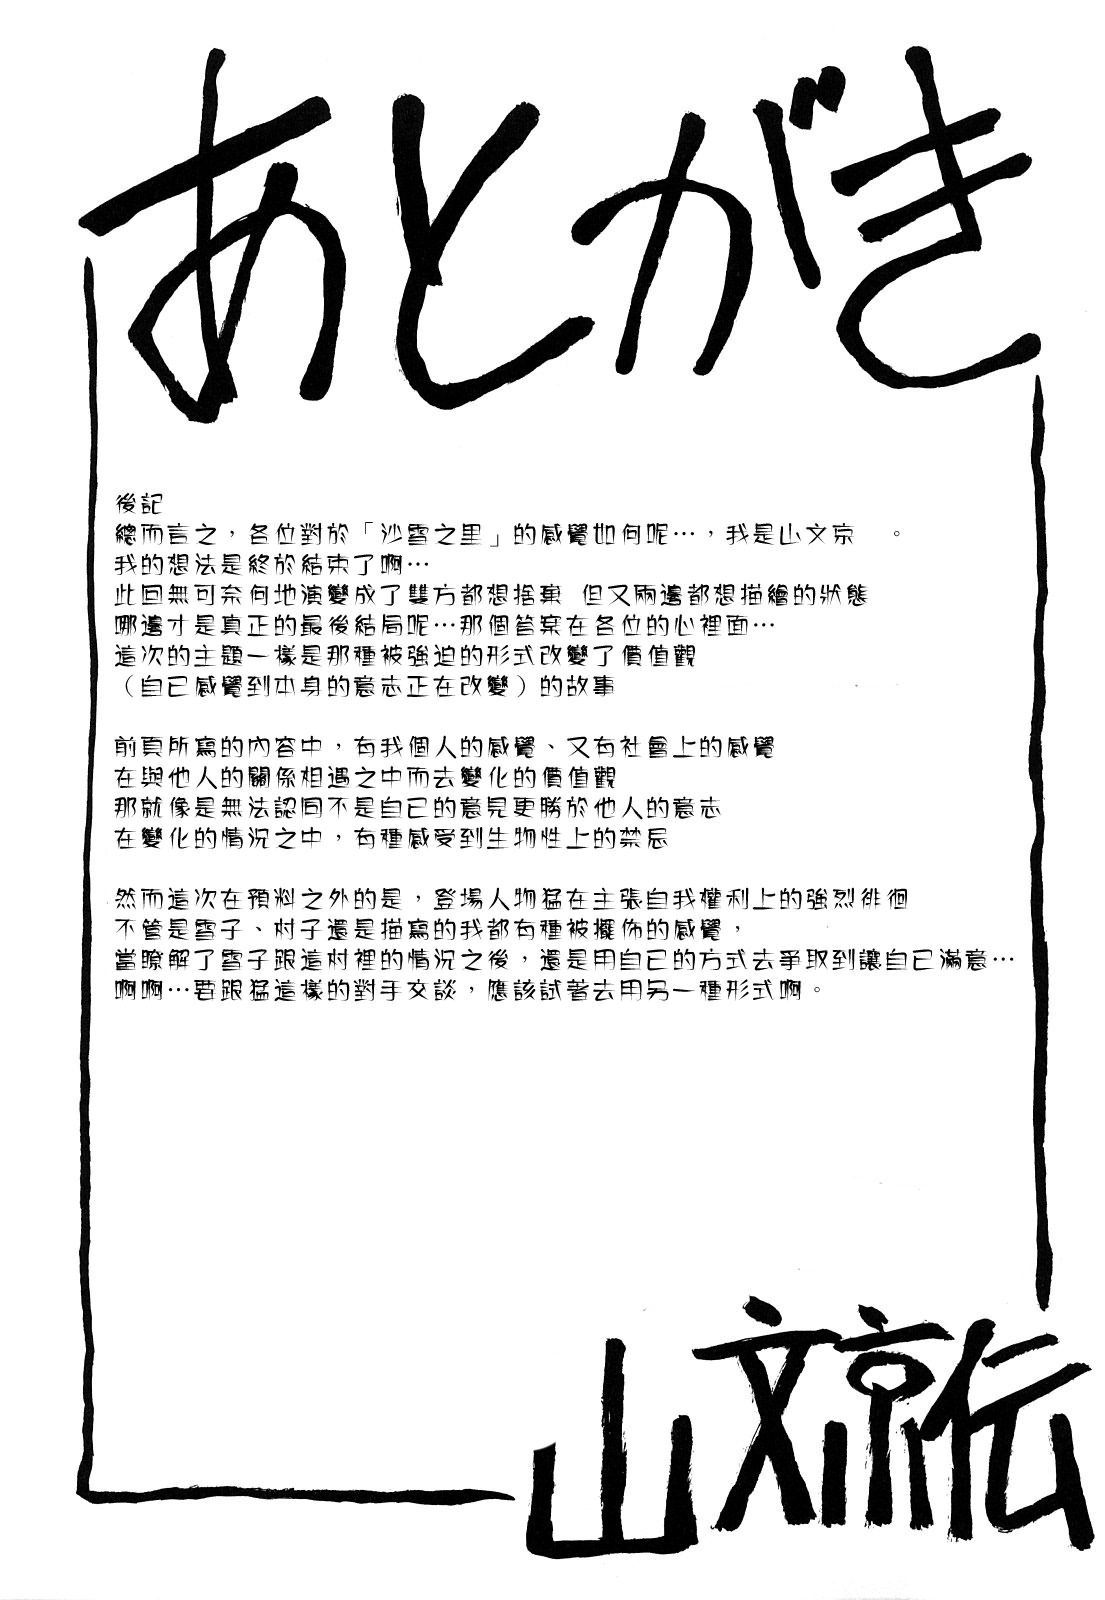 あとがき
後記
總而言之，各位對於「沙雪之里」的感覺如何呢…，我是山文京　。
我的想法是終於結束了啊…
此回無可奈何地演變成了雙方都想捨棄 但又兩邊都想描繪的狀態
哪邊才是真正的最後結局呢…那個答案在各位的心裡面…
這次的主題一樣是那種被強迫的形式改變了價值觀
（自己感覺到本身的意志正在改變）的故事
前頁所寫的內容中，有我個人的感覺、又有社會上的感覺
在與他人的關係相遇之中而去變化的價值觀
那就像是無法認同不是自己的意見更勝於他人的意志
在變化的情況之中，有種感受到生物性上的禁忌
然而這次在預料之外的是，登場人物猛在主張自我權利上的強烈徘徊
不管是雪子、村子還是描寫的我都有種被擺佈的感覺，
當瞭解了雪子跟這村裡的情況之後，還是用自己的方式去爭取到讓自己滿意…
啊啊…要跟猛這樣的對手交談，應該試著去用另一種形式啊。
山文京伝